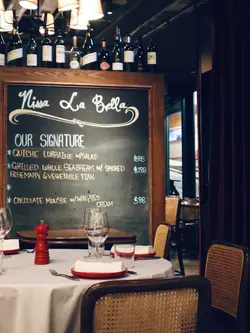 Nissa La Bella
OUR SIGNATURE
* QUICHE LORRAINE w/SALAD
* GRILLED WHOLE SEABREAM w/ SMOKED
ROSEMARY & VEGETABLE TIAN
* CHOCOLATE MOUSSE w/WHIPPED
CREAM